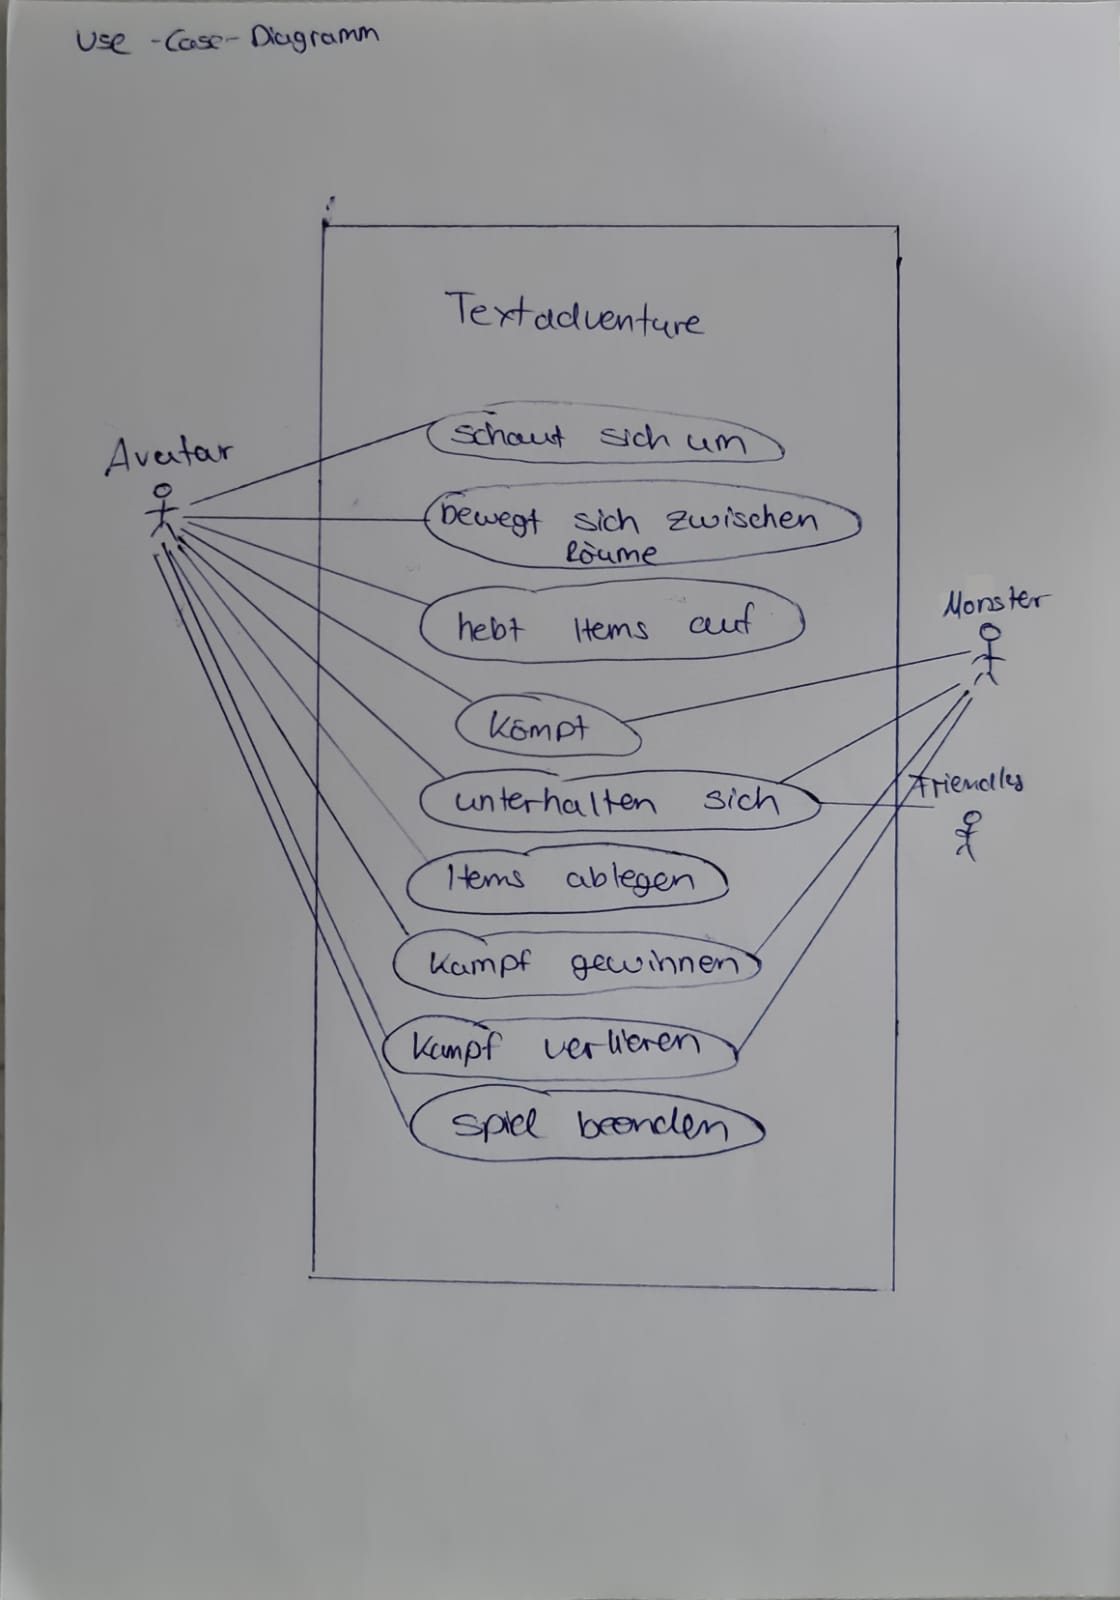 Use-Case-Diagramm
Textadventure
Avatar
schaut sich um
bewegt sich zwischen
Räume
hebt Items auf
Monster
kämpt
Friendly
unterhalten sich
Items ablegen
Kampf gewinnen
Kampf verlieren
spiel beenden